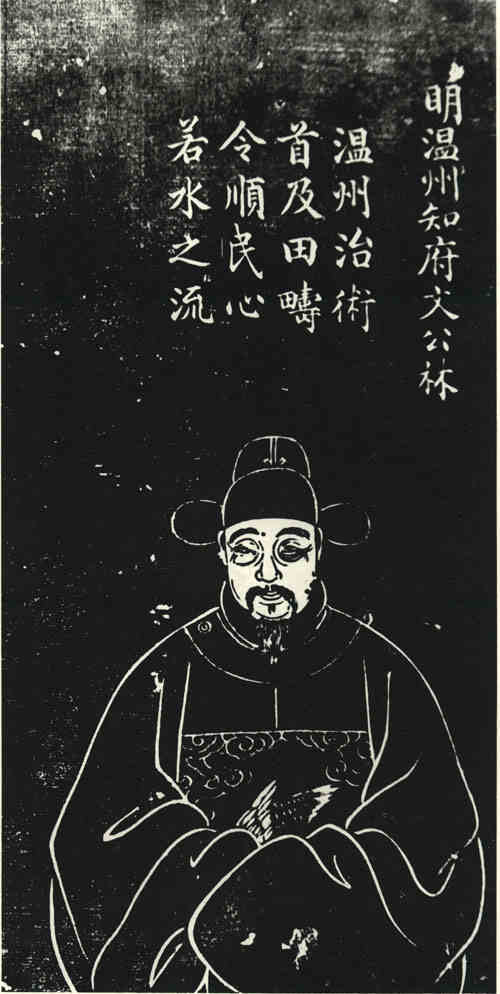 明温州知府文公林
温州治術
首及田疇
令順民心
若水之流